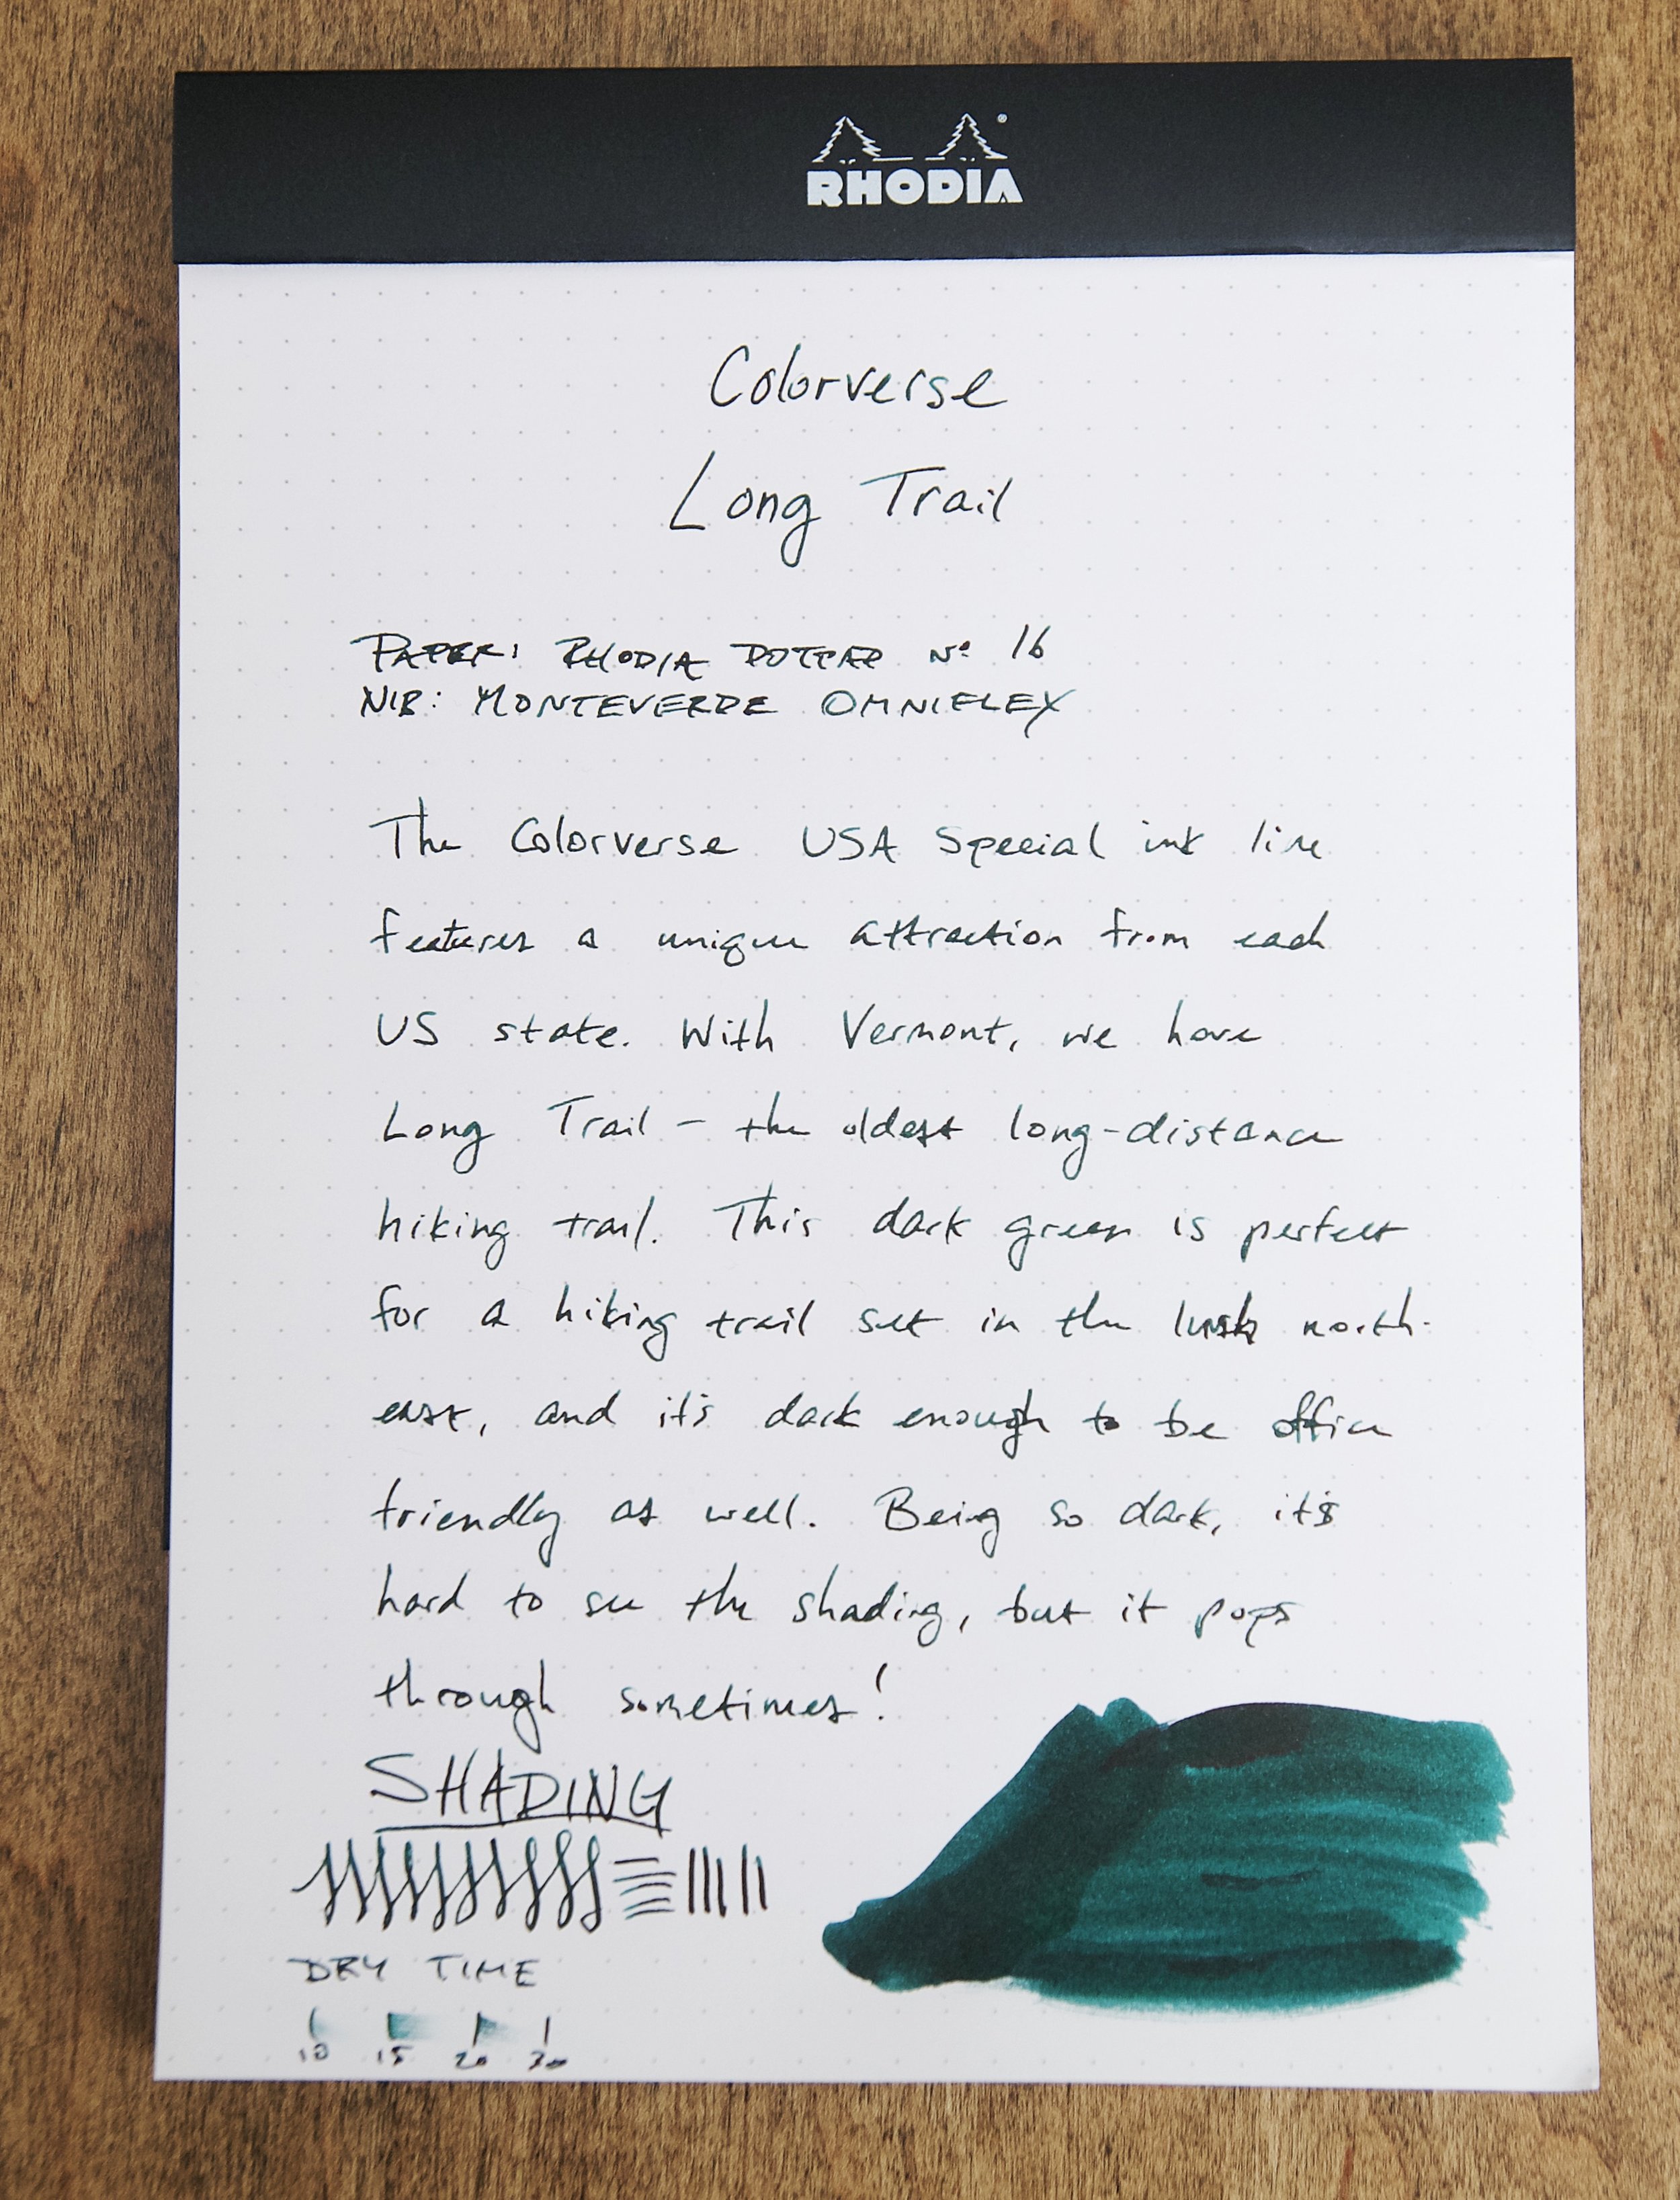 RHODIA
Colorverse
Long Trail
PAPER: RHODIA DOTPAD Nº 16
NIB: MONTEVERDE OMNIFLEX
The Colorverse USA Special ink line
features a unique attraction from each
US state. With Vermont, we have
Long Trail - the oldest long-distance
hiking trail. This dark green is perfect
for a hiking trail set in the lush north-
east, and it's dark enough to be office
friendly as well. Being so dark, it's
hard to see the shading, but it pops
through sometimes!
SHADING
DRY TIME
10 15 20 30